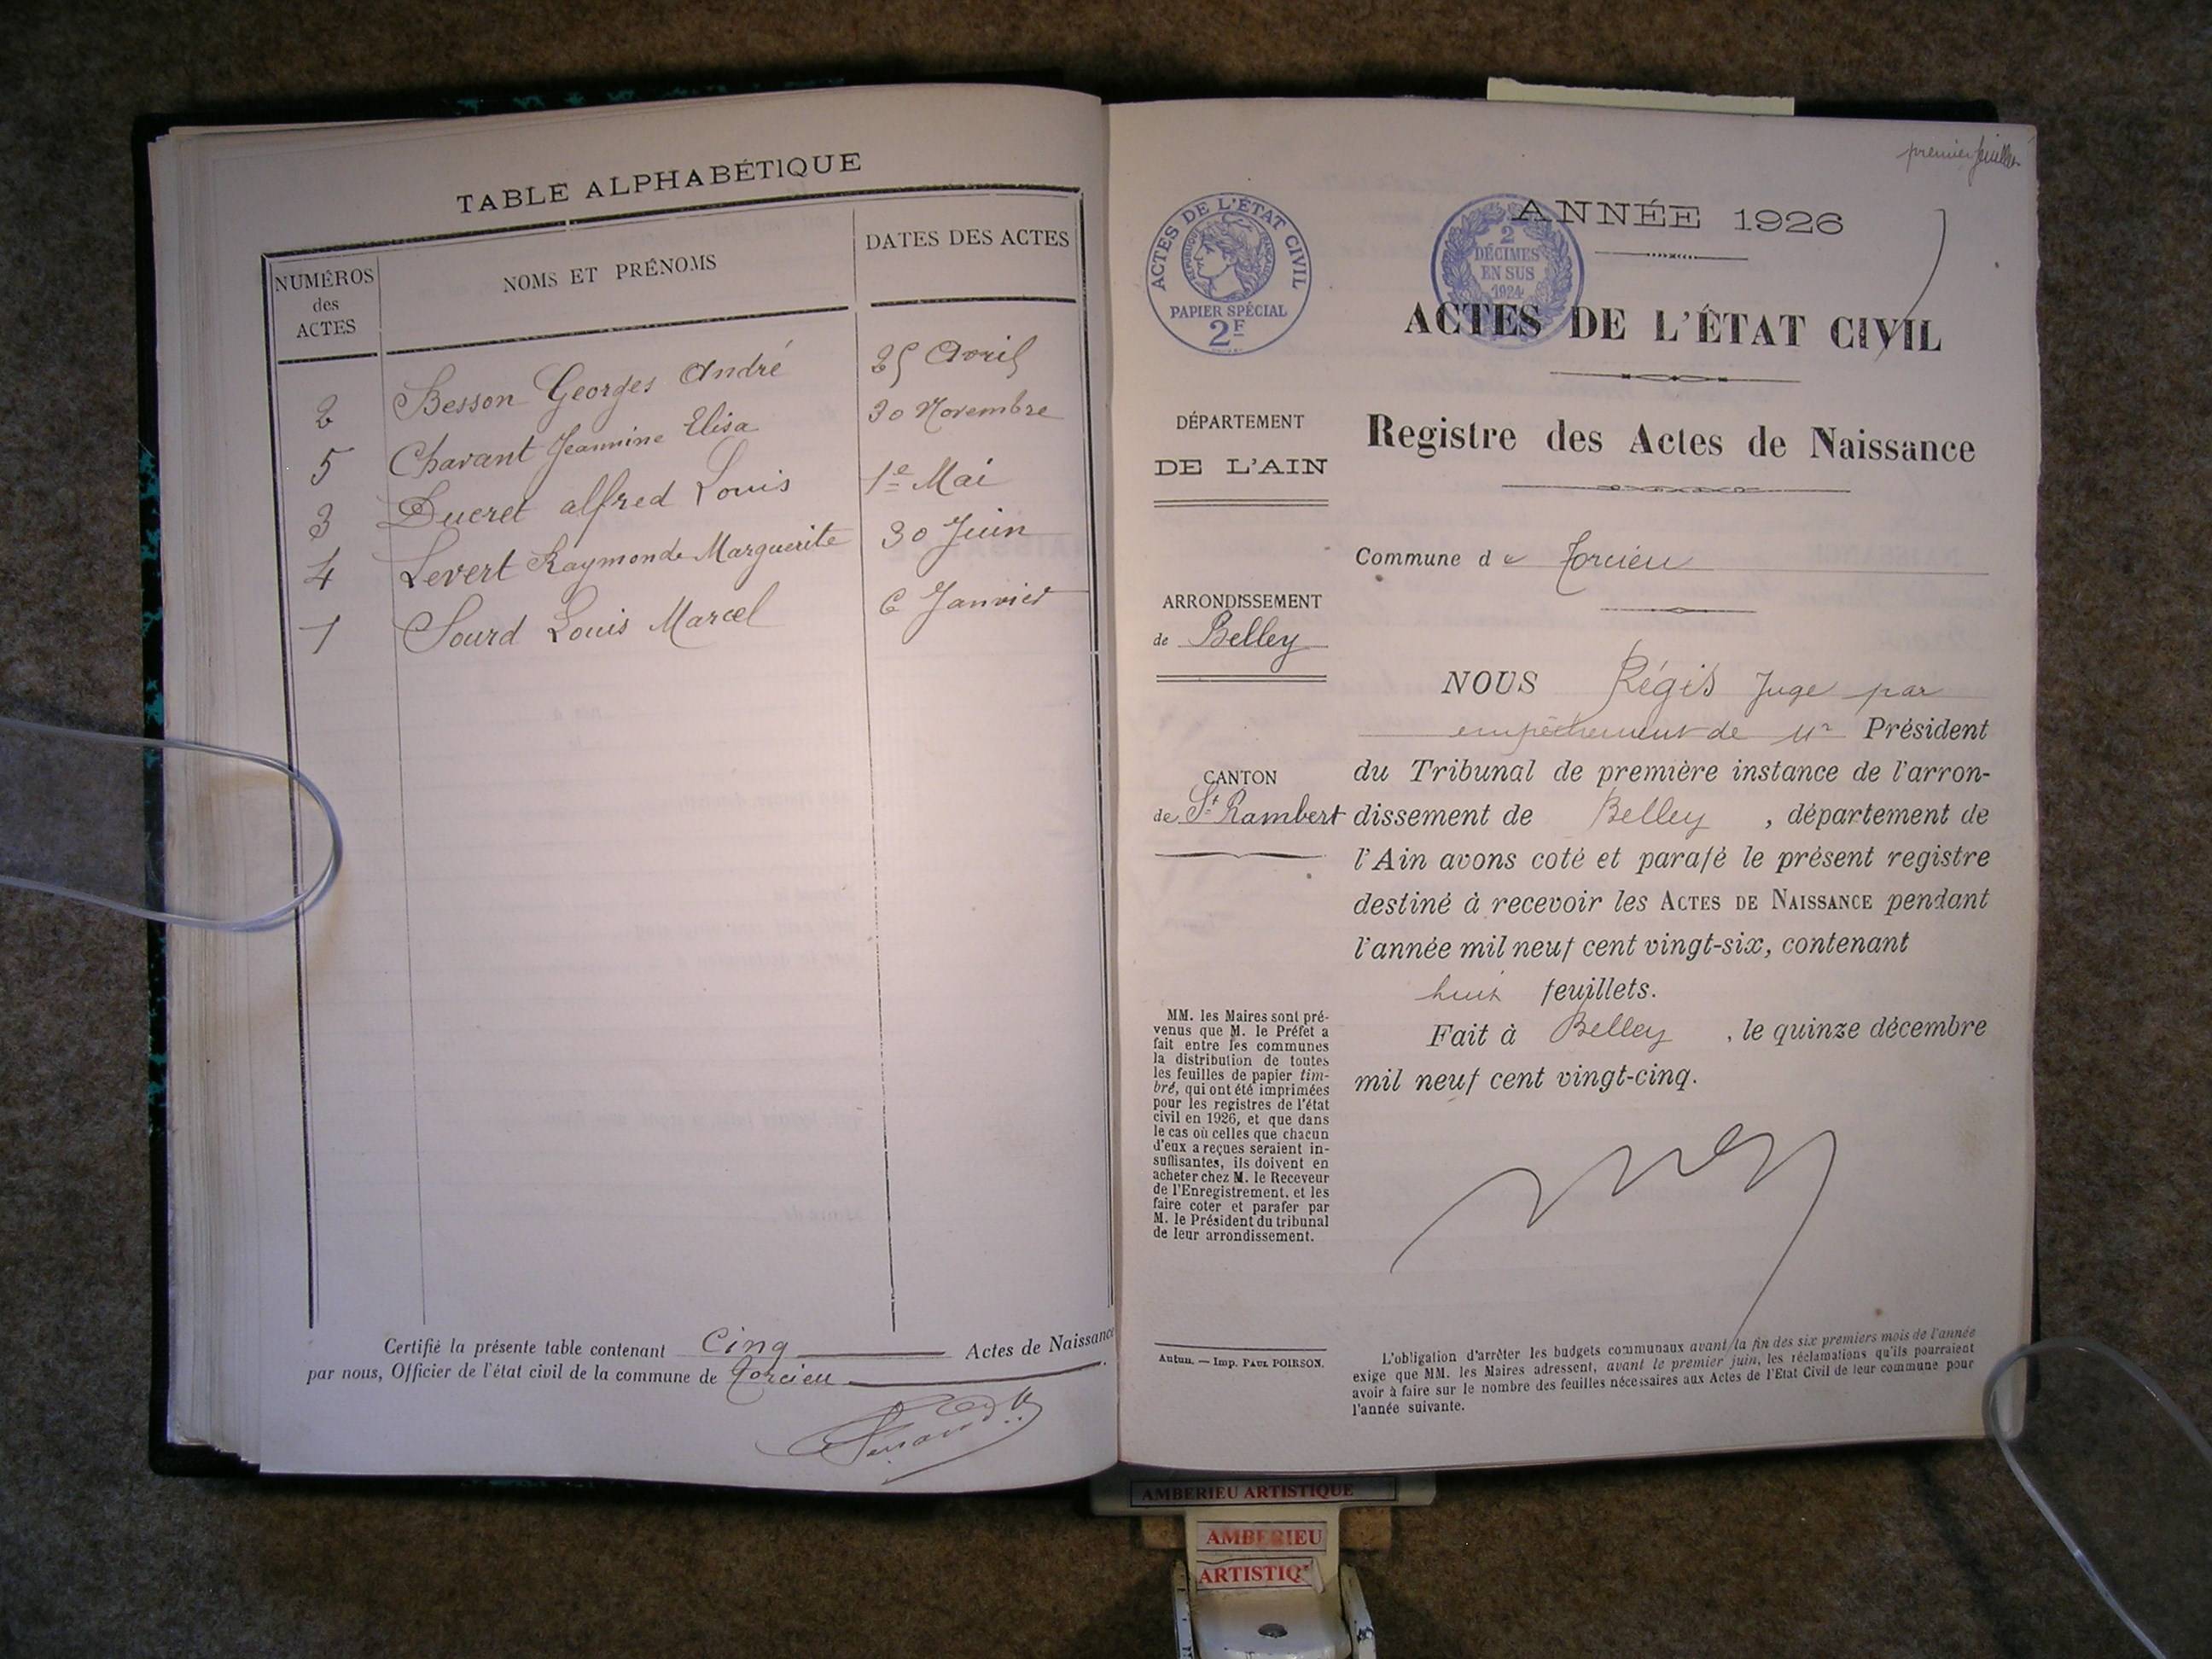 TABLE ALPHABÉTIQUE
NUMÉROS des ACTES
NOMS ET PRÉNOMS
DATES DES ACTES
2 Besson Georges André 25 Avril
5 Chavant Jeannine Elisa 30 Novembre
3 Ducret alfred Louis 1e Mai
4 Levert Raymonde Marguerite 30 Juin
1 Sourd Louis Marcel 6 Janvier
Certifié la présente table contenant Cinq Actes de Naissance
par nous, Officier de l'état civil de la commune de Torcieu.
premier feuillet
ACTES DE L'ÉTAT CIVIL
RÉPUBLIQUE FRANÇAISE
PAPIER SPÉCIAL
2F
2
DÉCIMES
EN SUS
1924
ANNÉE 1926
ACTES DE L'ÉTAT CIVIL
Registre des Actes de Naissance
DÉPARTEMENT
DE L'AIN
Commune de Torcieu
ARRONDISSEMENT
de Belley
CANTON
de St Rambert
NOUS Régis Juge par
empêchement de Mr Président
du Tribunal de première instance de l'arron-
dissement de Belley, département de
l'Ain avons coté et parafé le présent registre
destiné à recevoir les ACTES DE NAISSANCE pendant
l'année mil neuf cent vingt-six, contenant
huit feuillets.
Fait à Belley, le quinze décembre
mil neuf cent vingt-cinq.
MM. les Maires sont pré-
venus que M. le Préfet a
fait entre les communes
la distribution de toutes
les feuilles de papier tim-
bré, qui ont été imprimées
pour les registres de l'état
civil en 1926, et que dans
le cas où celles que chacun
d'eux a reçues seraient in-
suffisantes, ils doivent en
acheter chez M. le Receveur
de l'Enregistrement, et les
faire coter et parafer par
M. le Président du tribunal
de leur arrondissement.
Autun. — Imp. PAUL POIRSON.
L'obligation d'arrêter les budgets communaux avant la fin des six premiers mois de l'année
exige que MM. les Maires adressent, avant le premier juin, les réclamations qu'ils pourraient
avoir à faire sur le nombre des feuilles nécessaires aux Actes de l'Etat Civil de leur commune pour
l'année suivante.
AMBERIEU ARTISTIQUE
AMBERIEU
ARTISTIQ